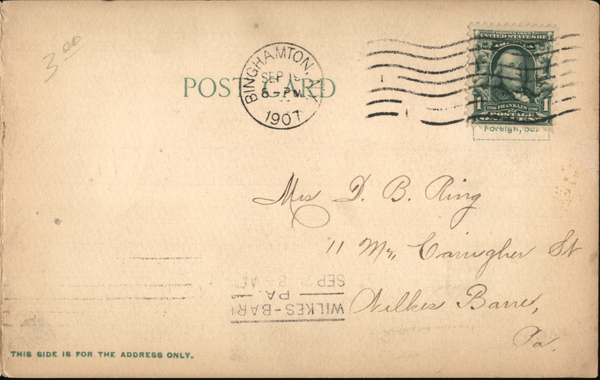 3.00
POST CARD
BINGHAMTON, N.Y.
SEP 19
6-PM
1907
UNITED STATES OF
1 FRANKLIN 1
POSTAGE
Foreign, 2c.
Mrs D. B. Ring
11 Mc Carragher St
Wilkes Barre,
Pa.
WILKES-BAR
PA.
SEP 2
THIS SIDE IS FOR THE ADDRESS ONLY.